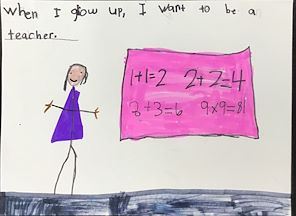 When I grow up, I want to be a
teacher.
1+1=2 2+2=4
3+3=6 9x9=81